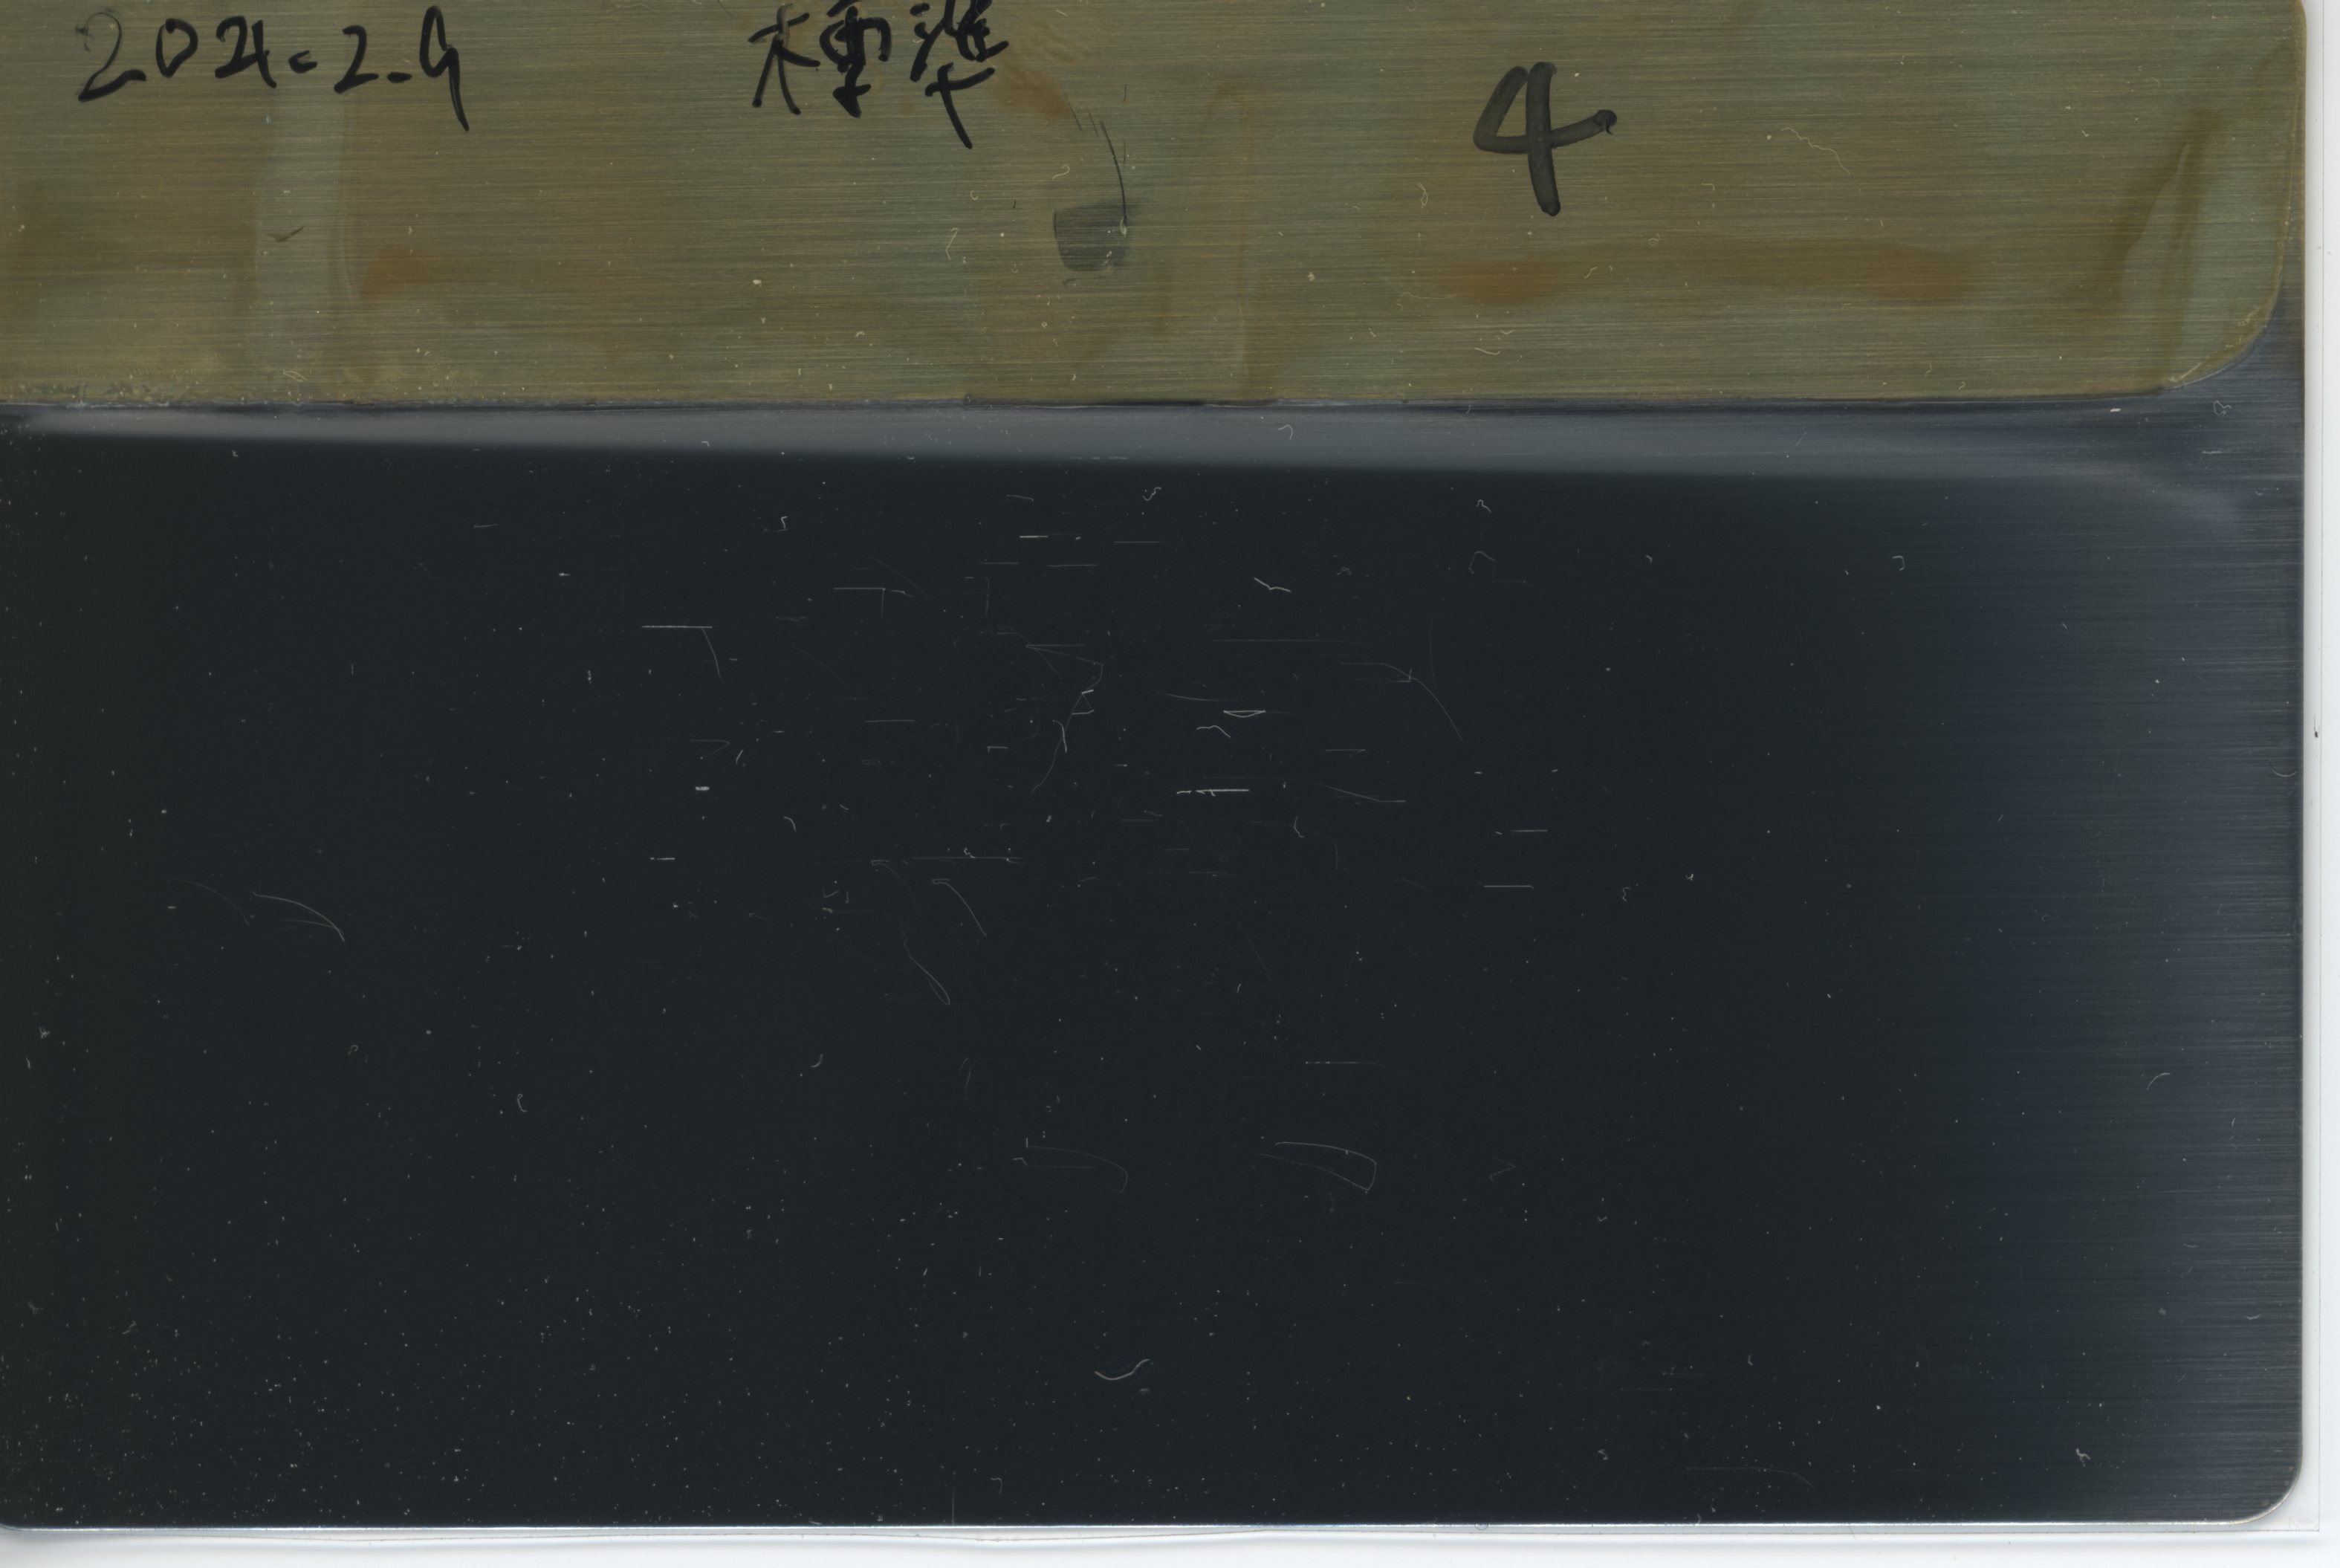 2021.2.9 標準 4